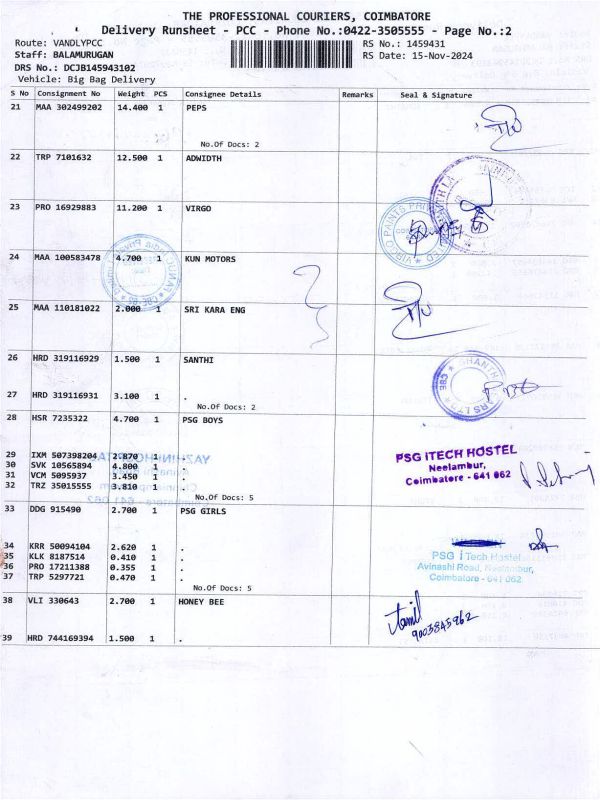 THE PROFESSIONAL COURIERS, COIMBATORE
Delivery Runsheet - PCC - Phone No.:0422-3505555 - Page No.:2
Route: VANDLYPCC RS No.: 1459431
Staff: BALAMURUGAN RS Date: 15-Nov-2024
DRS No.: DCJB145943102
Vehicle: Big Bag Delivery
S No Consignment No Weight PCS Consignee Details Remarks Seal & Signature
21 MAA 302499202 14.400 1 PEPS
No.Of Docs: 2
22 TRP 7101632 12.500 1 ADWIDTH
23 PRO 16929883 11.200 1 VIRGO
24 MAA 100583478 4.700 1 KUN MOTORS
25 MAA 110181022 2.000 1 SRI KARA ENG
26 HRD 319116929 1.500 1 SANTHI
27 HRD 319116931 3.100 1 .
No.Of Docs: 2
28 HSR 7235322 4.700 1 PSG BOYS
PSG iTECH HOSTEL
Neelambur,
Coimbatore - 641 062
29 IXM 507398204 2.870 1 .
30 SVK 10565894 4.800 1 .
31 VCM 5095937 3.450 1 .
32 TRZ 35015555 3.810 1 .
No.Of Docs: 5
33 DDG 915490 2.700 1 PSG GIRLS
PSG iTech Hostel
Avinashi Road, Neelambur,
Coimbatore - 641 062
34 KRR 50094104 2.620 1 .
35 KLK 8187514 0.410 1 .
36 PRO 17211388 0.355 1 .
37 TRP 5297721 0.470 1 .
No.Of Docs: 5
38 VLI 330643 2.700 1 HONEY BEE
Tamil
9003843962
39 HRD 744169394 1.500 1 .